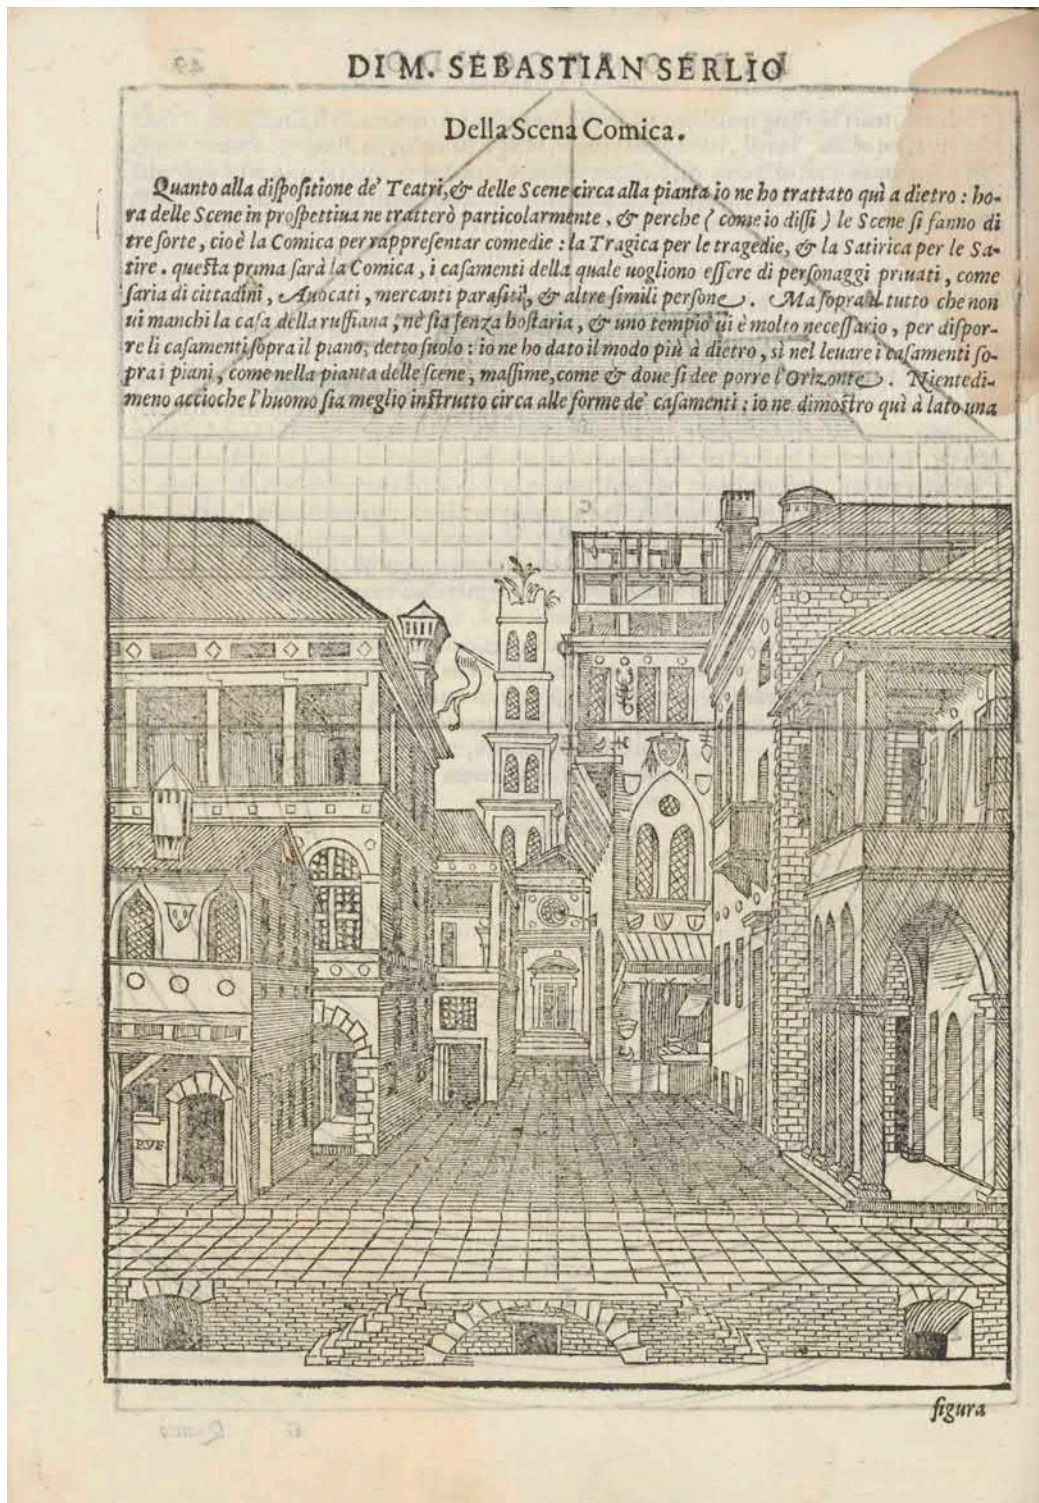 DI M. SEBASTIAN SERLIO
Della Scena Comica.
Quanto alla dispositione de' Teatri, & delle Scene circa alla pianta io ne ho trattato quì a dietro: ho-
ra delle Scene in prospettiua ne tratterò particolarmente, & perche (come io dissi) le Scene si fanno di
tre sorte, cioè la Comica per rappresentar comedie: la Tragica per le tragedie, & la Satirica per le Sa-
tire. questa prima sarà la Comica, i casamenti della quale uogliono essere di personaggi priuati, come
saria di cittadini, Auocati, mercanti parasiti, & altre simili persone. Ma sopra il tutto che non
ui manchi la casa della ruffiana, nè sia senza hostaria, & uno tempio ui è molto necessario, per dispor-
re li casamenti sopra il piano, detto suolo: io ne ho dato il modo più à dietro, sì nel leuare i casamenti so-
pra i piani, come nella pianta delle scene, massime, come & doue si dee porre l'Orizonte. Nientedi-
meno accioche l'huomo sia meglio instrutto circa alle forme de' casamenti: io ne dimostro quì à lato una
RVF
figura